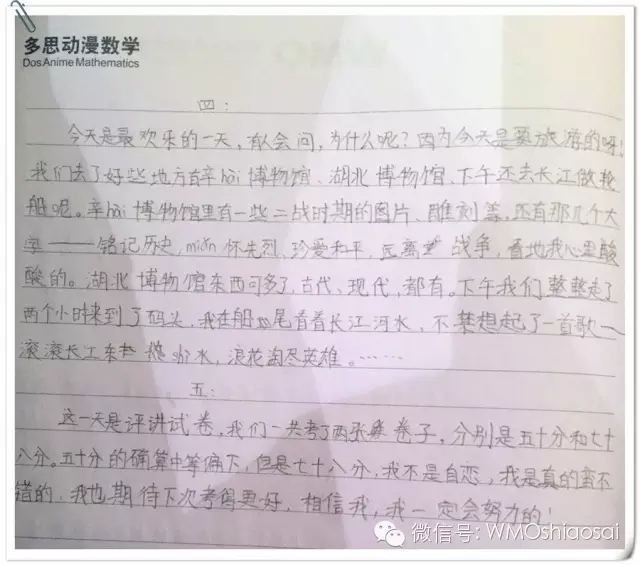 多思动漫数学
Dos Anime Mathematics
四:
今天是最欢乐的一天,有人会问,为什么呢?因为今天是要旅游的呀!
我们去了好些地方有辛hài博物馆、湖北博物馆、下午还去长江做轮
船呢。辛hài博物馆里有一些二战时期的图片、雕刻等,还有那几个大
字——铭记历史,miǎn怀先烈,珍爱和平,远离战争,看地我心里酸
酸的。湖北博物馆东西可多了,古代、现代,都有。下午我们整整走了
两个小时来到了码头,我在船尾看着长江河水,不禁想起了一首歌—
滚滚长江东shì水,浪花淘尽英雄。……
五:
这一天是评讲试卷,我们一共考了两张卷子,分别是五十分和七十
八分。五十分的确算中等偏下,但是七十八分,我不是自恋,我是真的蛮不
错的,我也期待下次考得更好,相信我,我一定会努力的!
微信号: WMOshiaosai